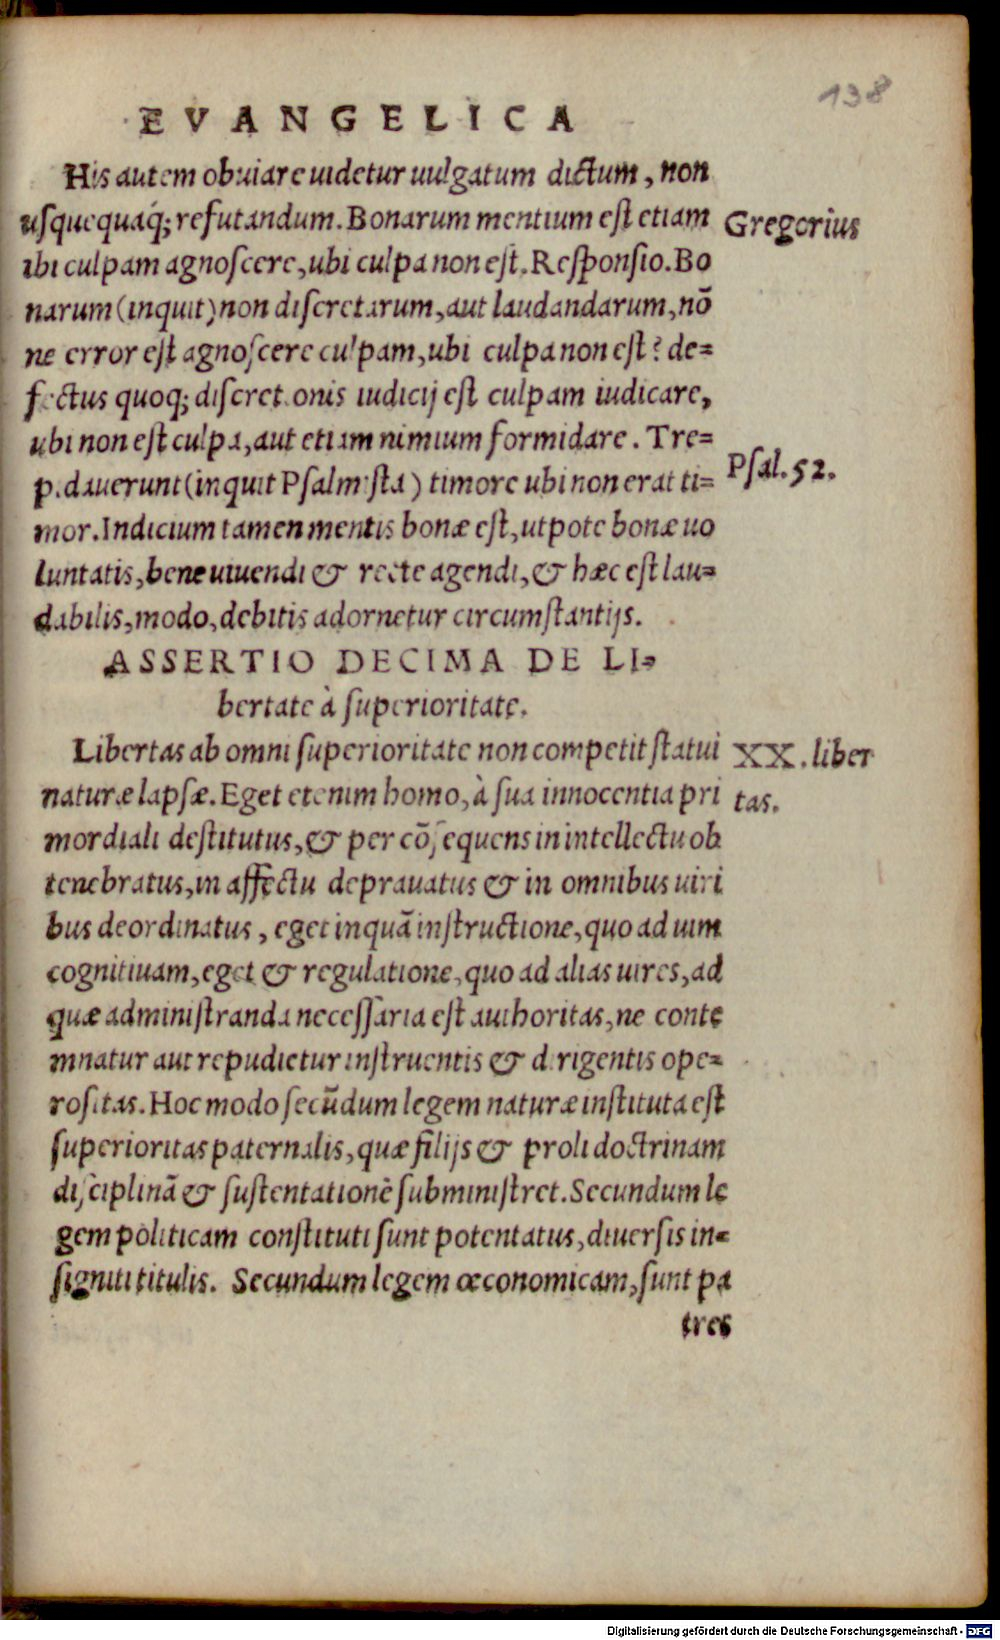 138
EVANGELICA
His autem obuiare uidetur uulgatum dictum, non
usquequaq́; refutandum. Bonarum mentium est etiam
Gregorius
ibi culpam agnoscere, ubi culpa non est. Responsio. Bo
narum (inquit) non discretarum, aut laudandarum, nō
ne error est agnoscere culpam, ubi culpa non est? de=
fectus quoq; discretionis iudicij est culpam iudicare,
ubi non est culpa, aut etiam nimium formidare. Tre=
pidauerunt (inquit Psalmista) timore ubi non erat ti=
Psal. 52.
mor. Indicium tamen mentis bonæ est, utpote bonæ uo
luntatis, bene uiuendi & recte agendi, & hæc est lau=
dabilis, modo, debitis adornetur circumstantijs.
ASSERTIO DECIMA DE LI=
bertate à superioritate.
Libertas ab omni superioritate non competit statui
XX. liber
naturæ lapsæ. Eget etenim homo, à sua innocentia pri
tas.
mordiali destitutus, & per cōsequens in intellectu ob
tenebratus, in affectu deprauatus & in omnibus uiri
bus deordinatus, eget inquā instructione, quo ad uim
cognitiuam, eget & regulatione, quo ad alias uires, ad
quæ administranda necessaria est authoritas, ne conte
mnatur aut repudietur instruentis & dirigentis ope=
rositas. Hoc modo secūdum legem naturæ instituta est
superioritas paternalis, quæ filijs & proli doctrinam
disciplinā & sustentationē subministret. Secundum le
gem politicam constituti sunt potentatus, diuersis in=
signiti titulis. Secundum legem œconomicam, sunt pa
tres
Digitalisierung gefördert durch die Deutsche Forschungsgemeinschaft - DFG